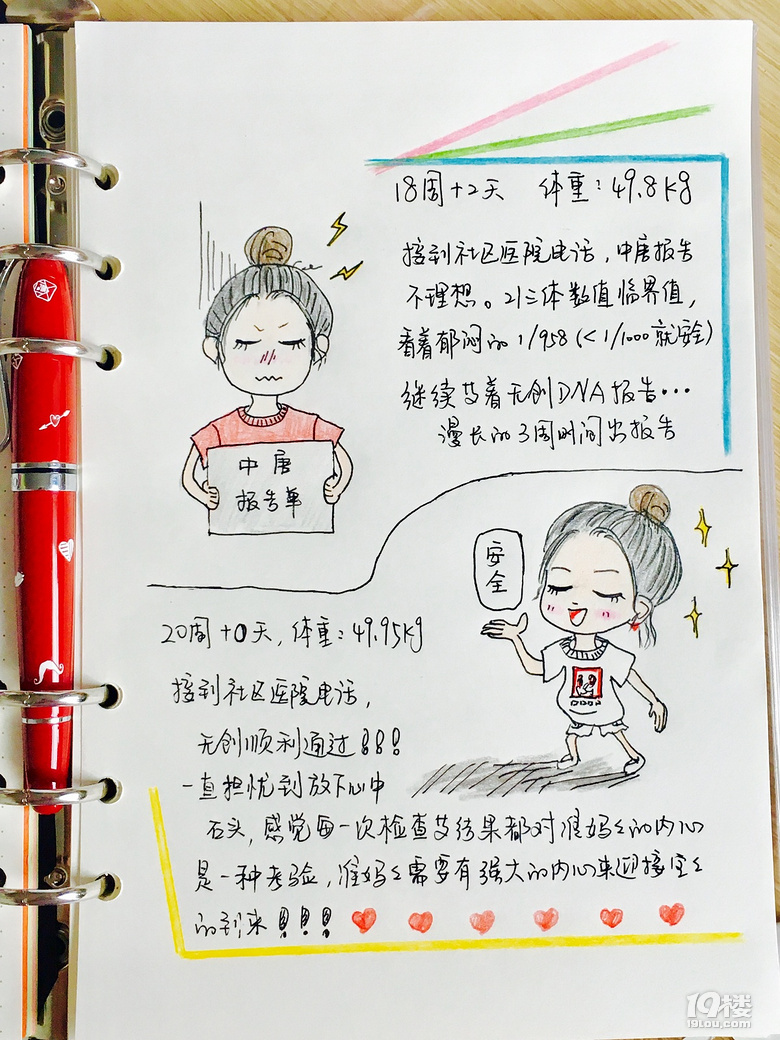 18周+2天 体重:49.8kg
接到社区医院电话,中唐报告
不理想。21三体数值临界值,
看着郁闷的1/958(<1/1000就安全)
继续等着无创DNA报告...
漫长的3周时间出报告
中唐
报告单
安全
20周+0天,体重:49.95kg
接到社区医院电话,
无创顺利通过!!!
一直担忧到放下心中
石头,感觉每一次检查等结果都对准妈妈的内心
是一种考验,准妈妈需要有强大的内心来迎接宝宝
的到来!!!
19楼
19lou.com